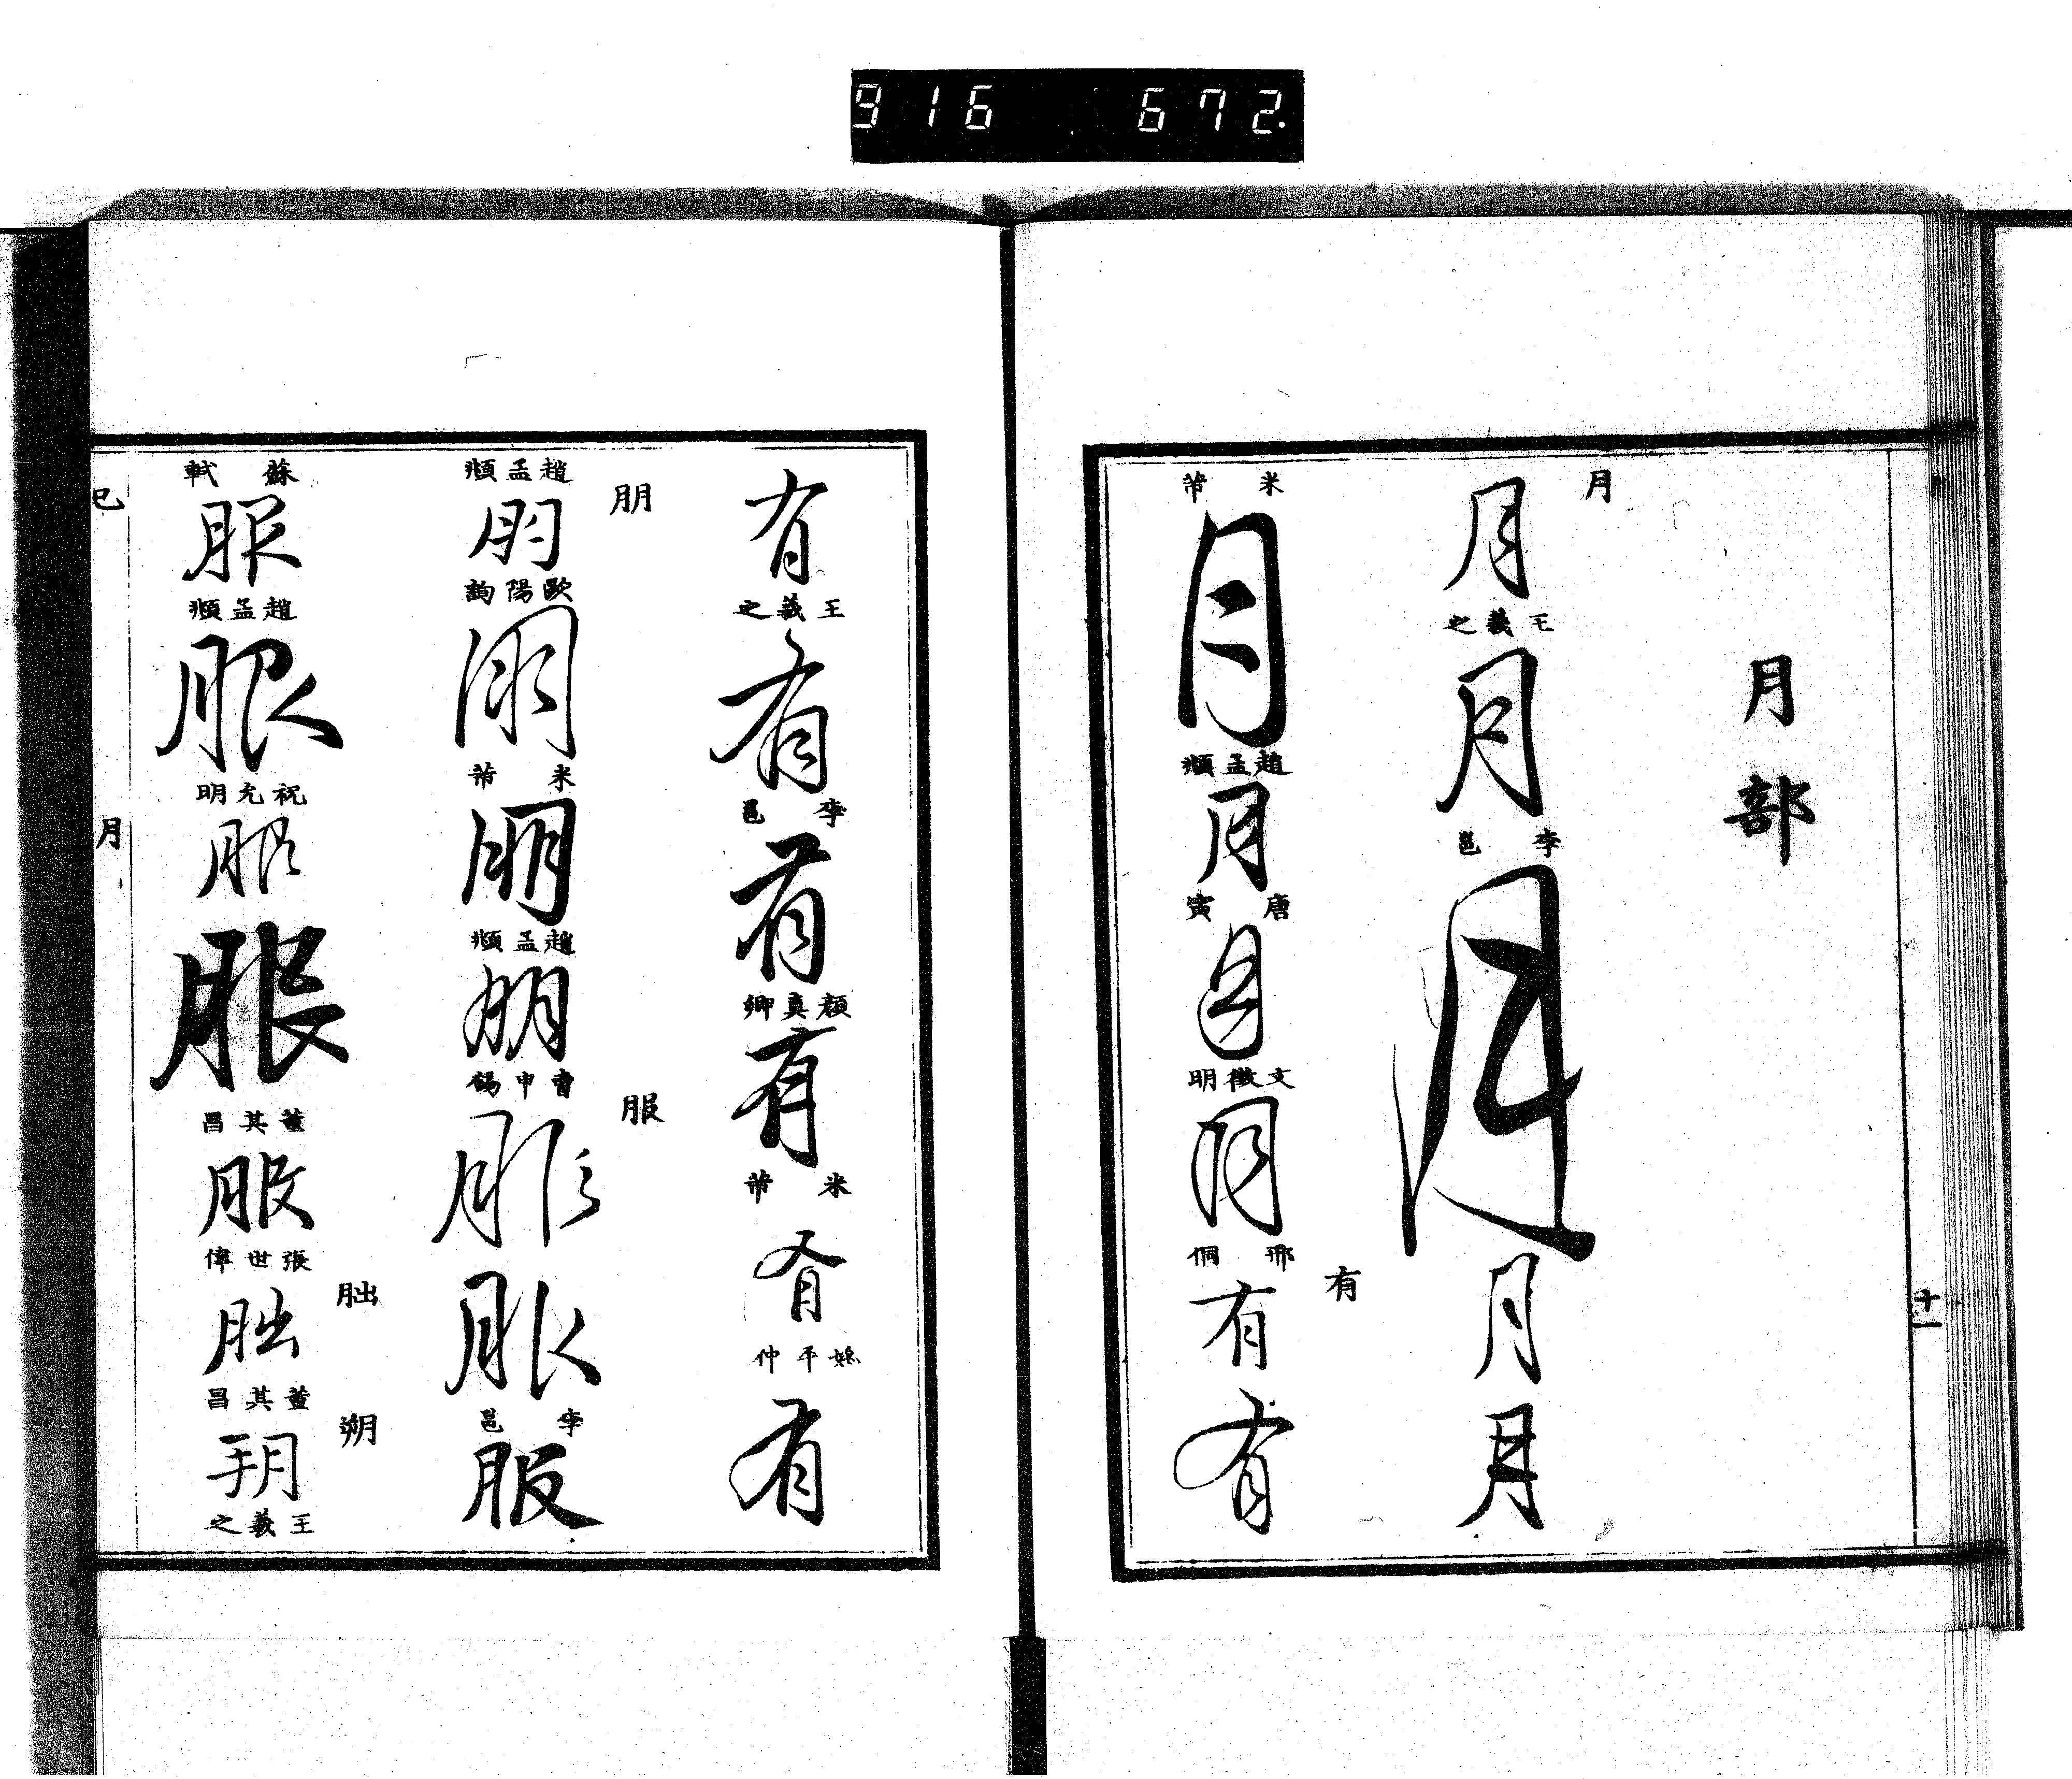 916 672.
月部
十一
月
月
王羲之
月
李邕
月
月
月
米芾
月
趙孟頫
月
唐寅
月
文徵明
月
邢侗
有
有
有
有
王羲之
有
李邕
有
顏真卿
有
米芾
有
仲
有
趙孟頫
朋
朋
歐陽詢
朋
米芾
朋
趙孟頫
朋
服
服
服
李邕
服
蘇軾
服
趙孟頫
服
祝允明
服
服
董其昌
服
張世偉
朏
朏
董其昌
朔
朔
王羲之
巳
月